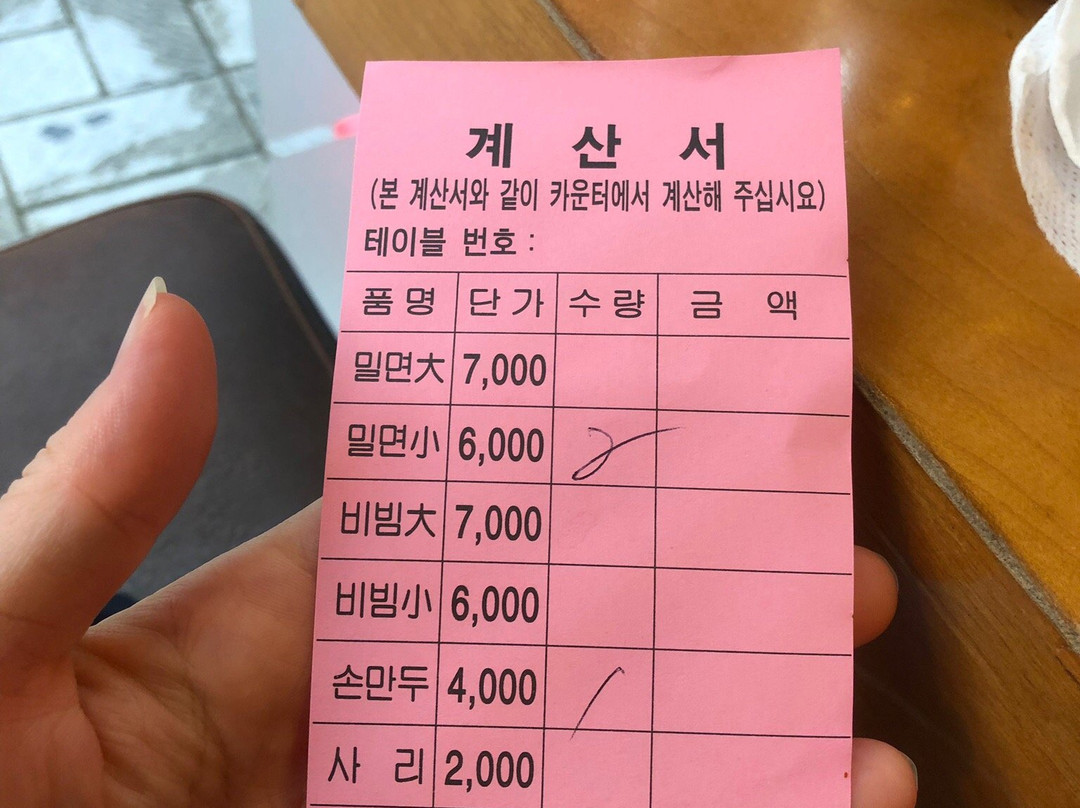 계 산 서
(본 계산서와 같이 카운터에서 계산해 주십시요)
테이블 번호 :
품명 단가 수량 금 액
밀면大 7,000
밀면小 6,000 2
비빔大 7,000
비빔小 6,000
손만두 4,000 /
사 리 2,000